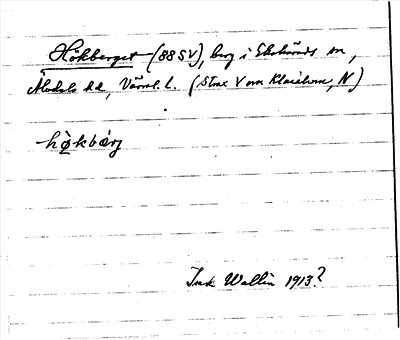 Hökberget (88 SV), berg i Ekshärads sn,
Älvdals hd, Värml. l. (Strax V om Klarälven, N)
hö̀kbærj
Ink Wallin 1913?